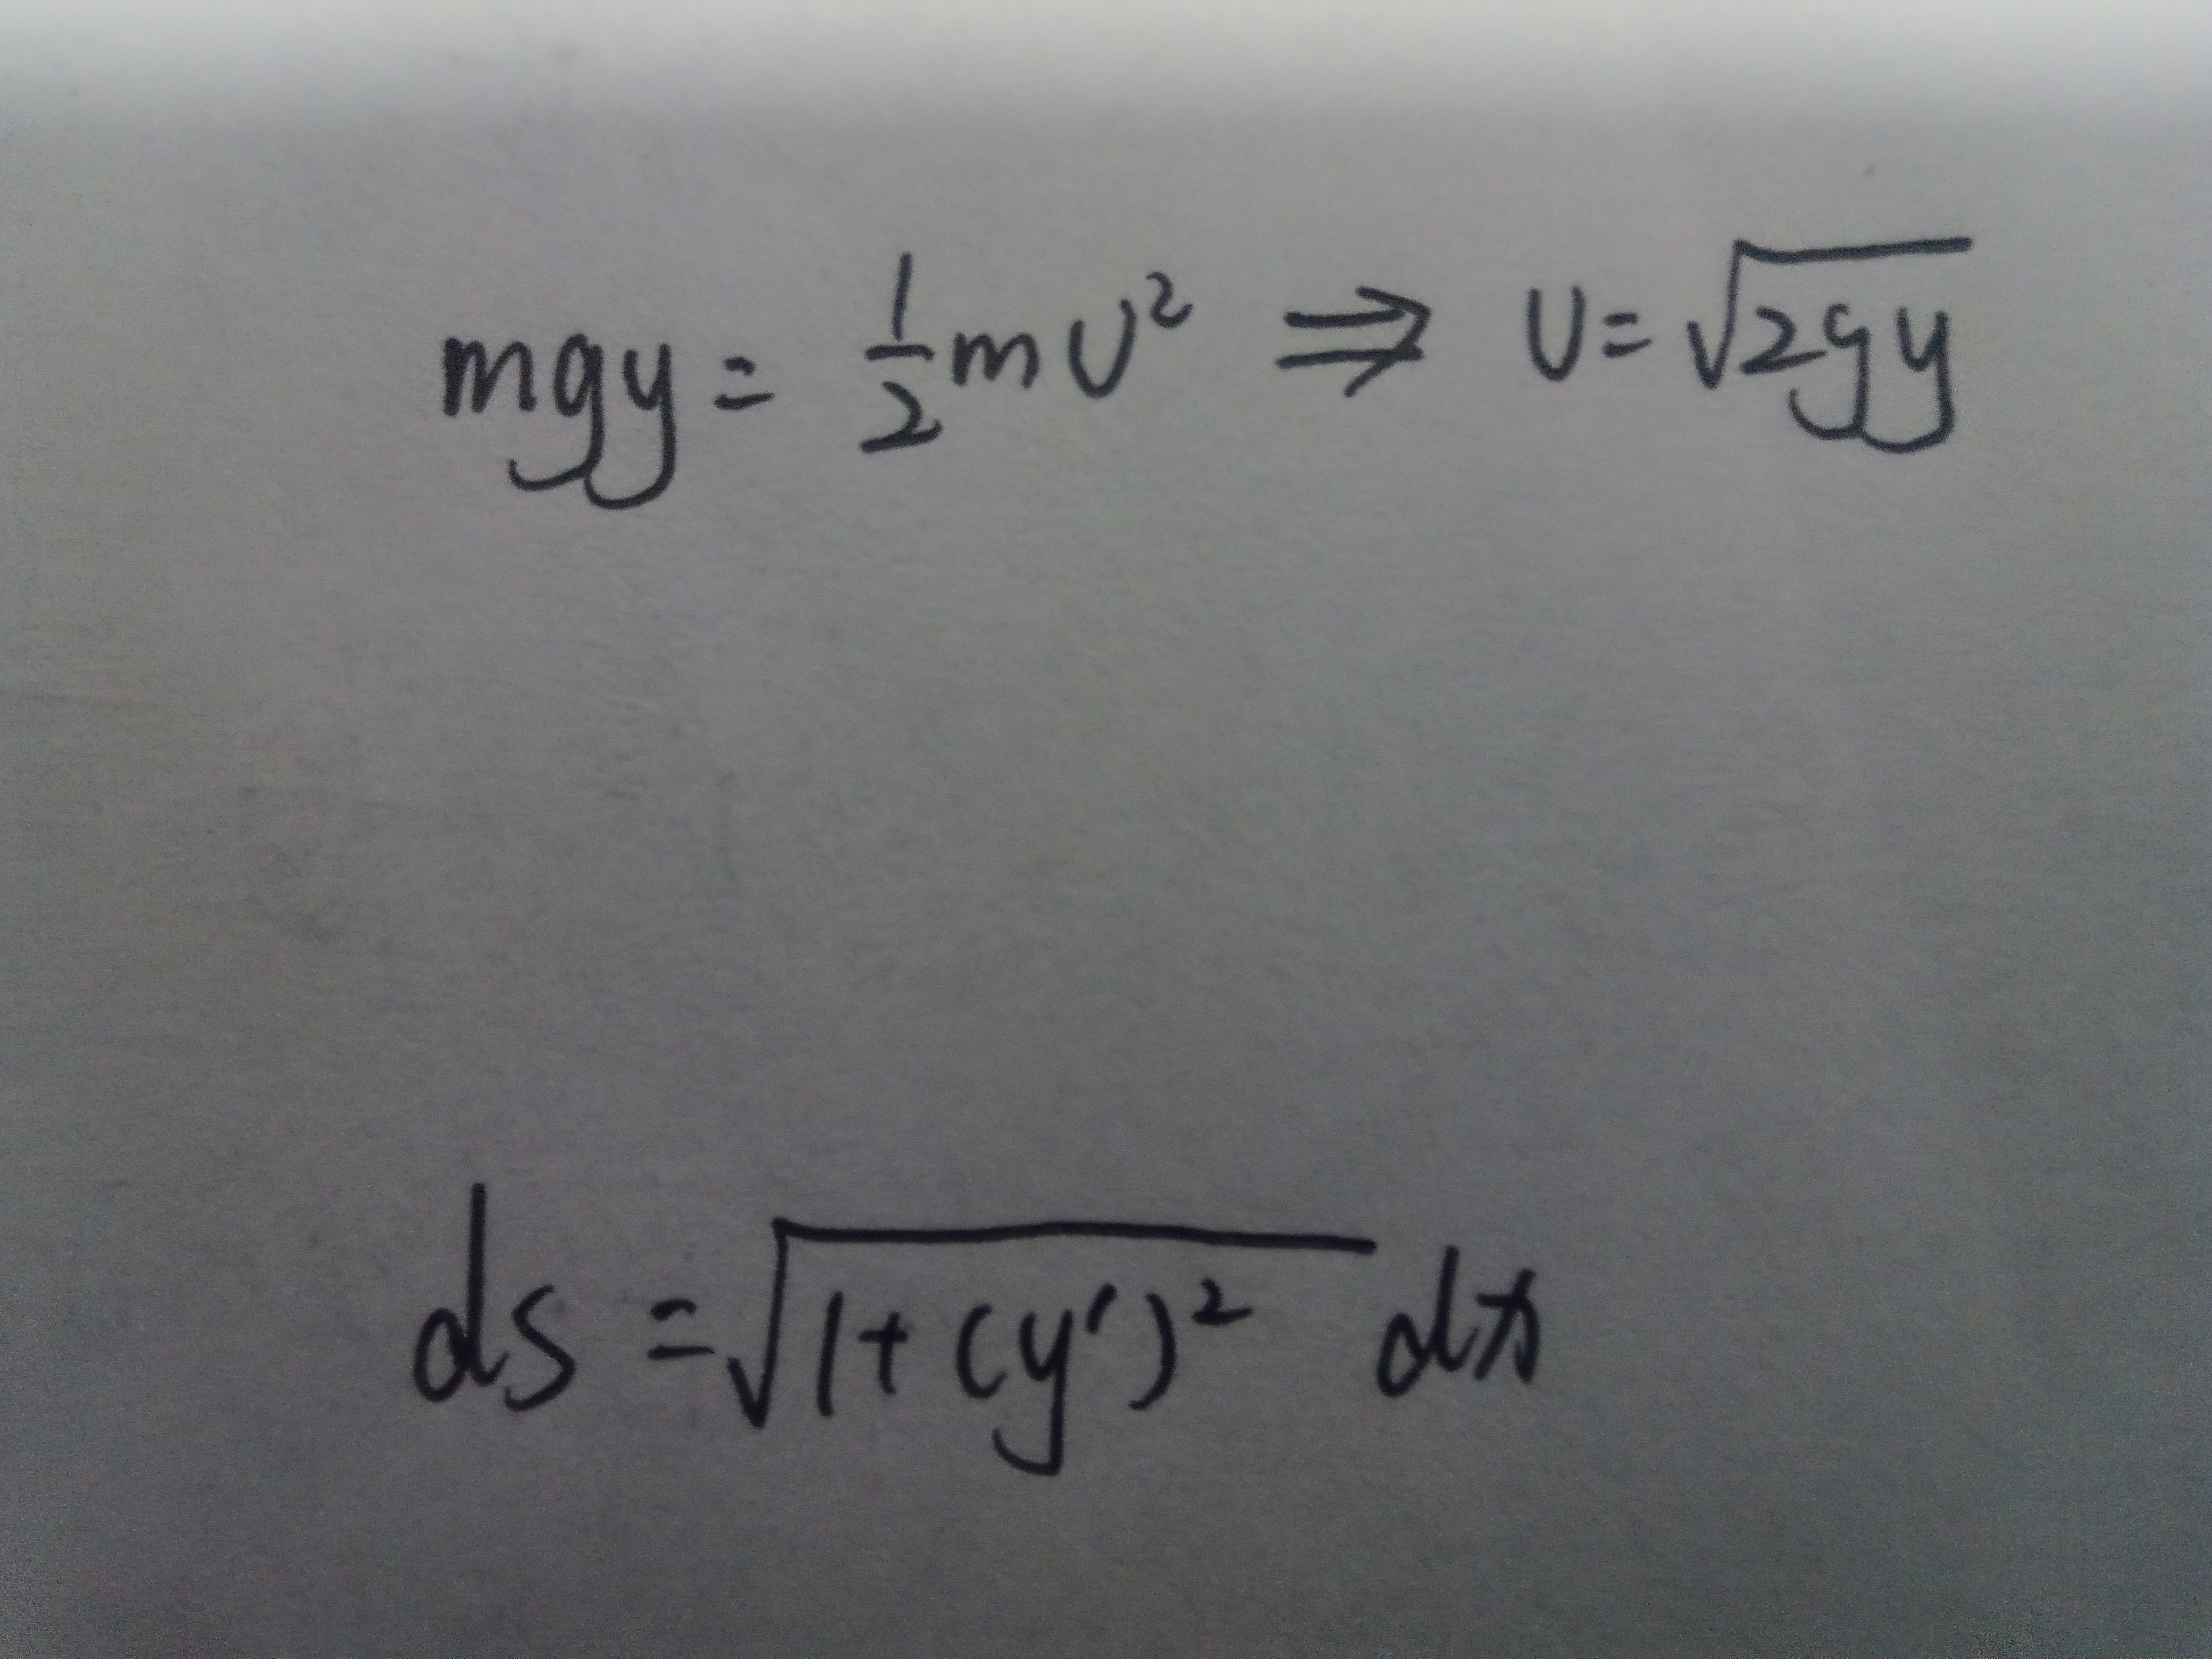 mgy = 1/2 mυ² ⇒ υ = √2gy
ds = √1+(y′)² dx